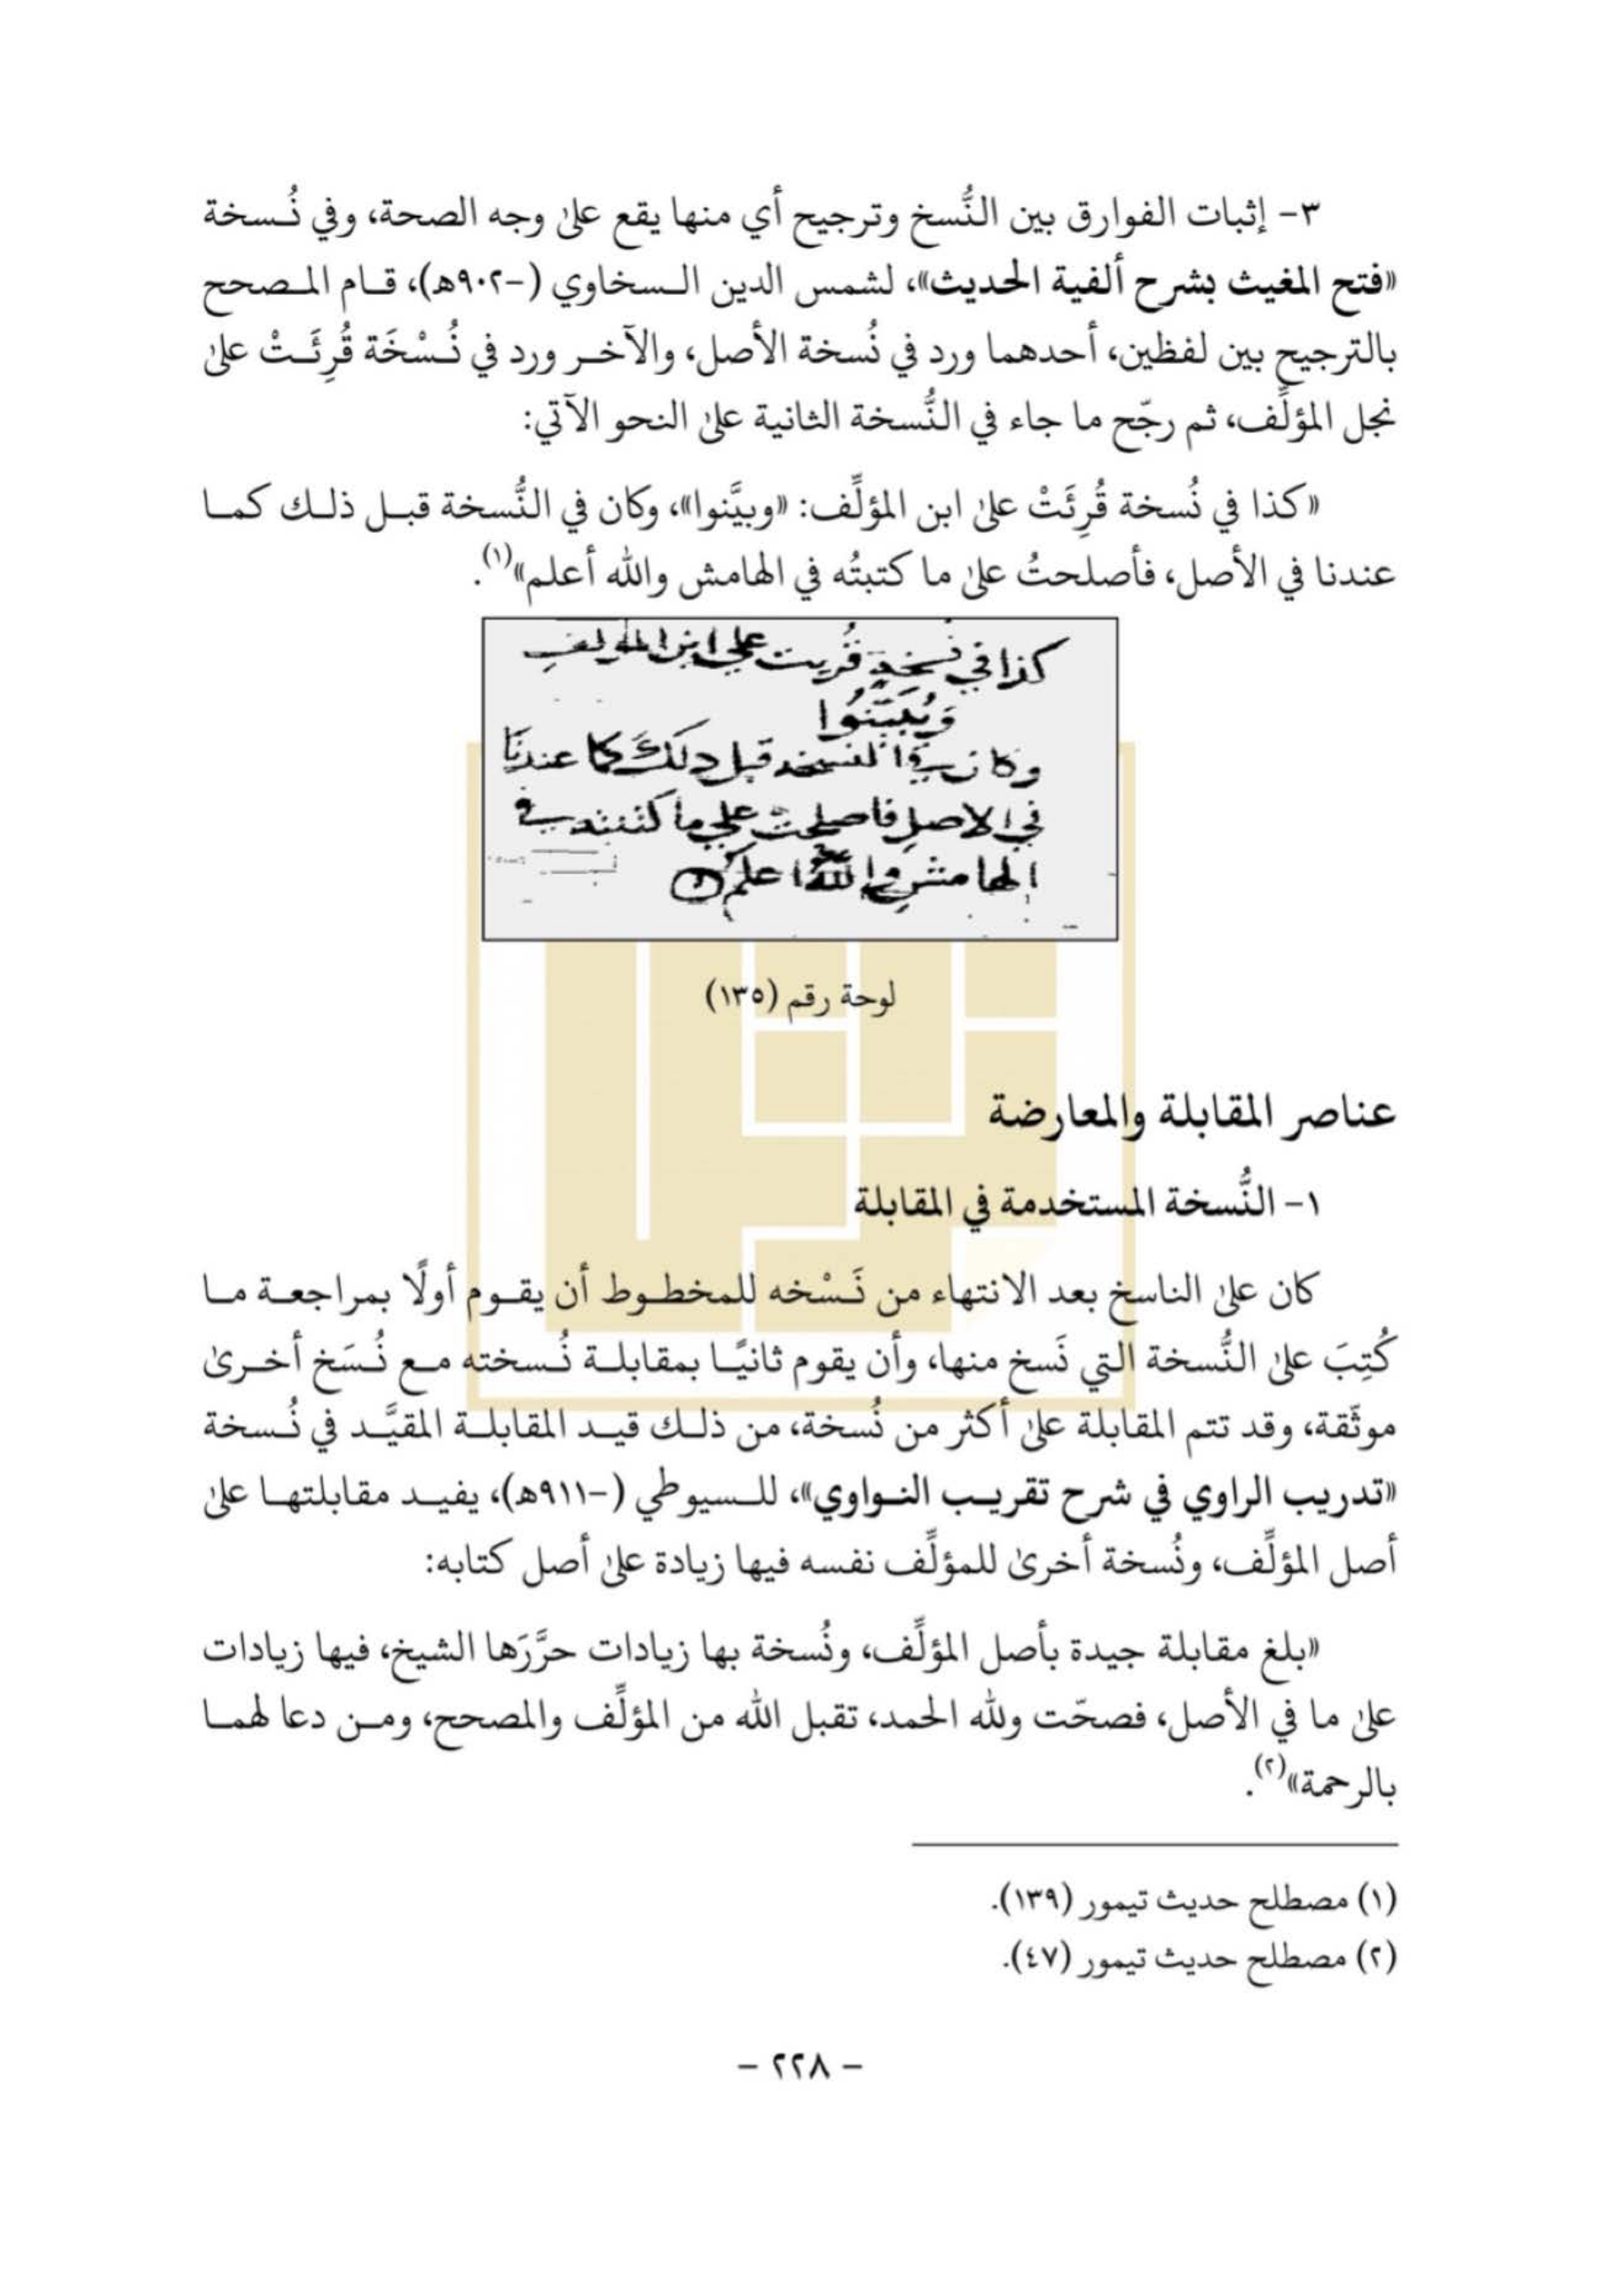 ٣- إثبات الفوارق بين النُّسخ وترجيح أي منها يقع علىٰ وجه الصحة، وفي نُسخة
«فتح المغيث بشرح ألفية الحديث»، لشمس الدين السخاوي (-٩٠٢هـ)، قام المصحح
بالترجيح بين لفظين، أحدهما ورد في نُسخة الأصل، والآخر ورد في نُسْخَة قُرِئَتْ علىٰ
نجل المؤلِّف، ثم رجّح ما جاء في النُّسخة الثانية علىٰ النحو الآتي:
«كذا في نُسخة قُرِئَتْ علىٰ ابن المؤلِّف: «وبيَّنوا»، وكان في النُّسخة قبل ذلك كما
عندنا في الأصل، فأصلحتُ علىٰ ما كتبتُه في الهامش والله أعلم»(١).
كذا في نسخة قُريت علي ابن المولف
وَبَيَّنُوا
وكان في النسخه قبل دلك كما عندنا
في الاصل فاصلحت علي ما كتبته في
الهامش والله اعلم
لوحة رقم (١٣٥)
عناصر المقابلة والمعارضة
١- النُّسخة المستخدمة في المقابلة
كان علىٰ الناسخ بعد الانتهاء من نَسْخه للمخطوط أن يقوم أولًا بمراجعة ما
كُتِبَ علىٰ النُّسخة التي نَسخ منها، وأن يقوم ثانيًا بمقابلة نُسخته مع نُسَخ أخرىٰ
موثّقة، وقد تتم المقابلة علىٰ أكثر من نُسخة، من ذلك قيد المقابلة المقيَّد في نُسخة
«تدريب الراوي في شرح تقريب النواوي»، للسيوطي (-٩١١هـ)، يفيد مقابلتها علىٰ
أصل المؤلِّف، ونُسخة أخرىٰ للمؤلِّف نفسه فيها زيادة علىٰ أصل كتابه:
«بلغ مقابلة جيدة بأصل المؤلِّف، ونُسخة بها زيادات حرَّرَها الشيخ، فيها زيادات
علىٰ ما في الأصل، فصحّت ولله الحمد، تقبل الله من المؤلِّف والمصحح، ومن دعا لهما
بالرحمة»(٢).
(١) مصطلح حديث تيمور (١٣٩).
(٢) مصطلح حديث تيمور (٤٧).
- ٢٢٨ -